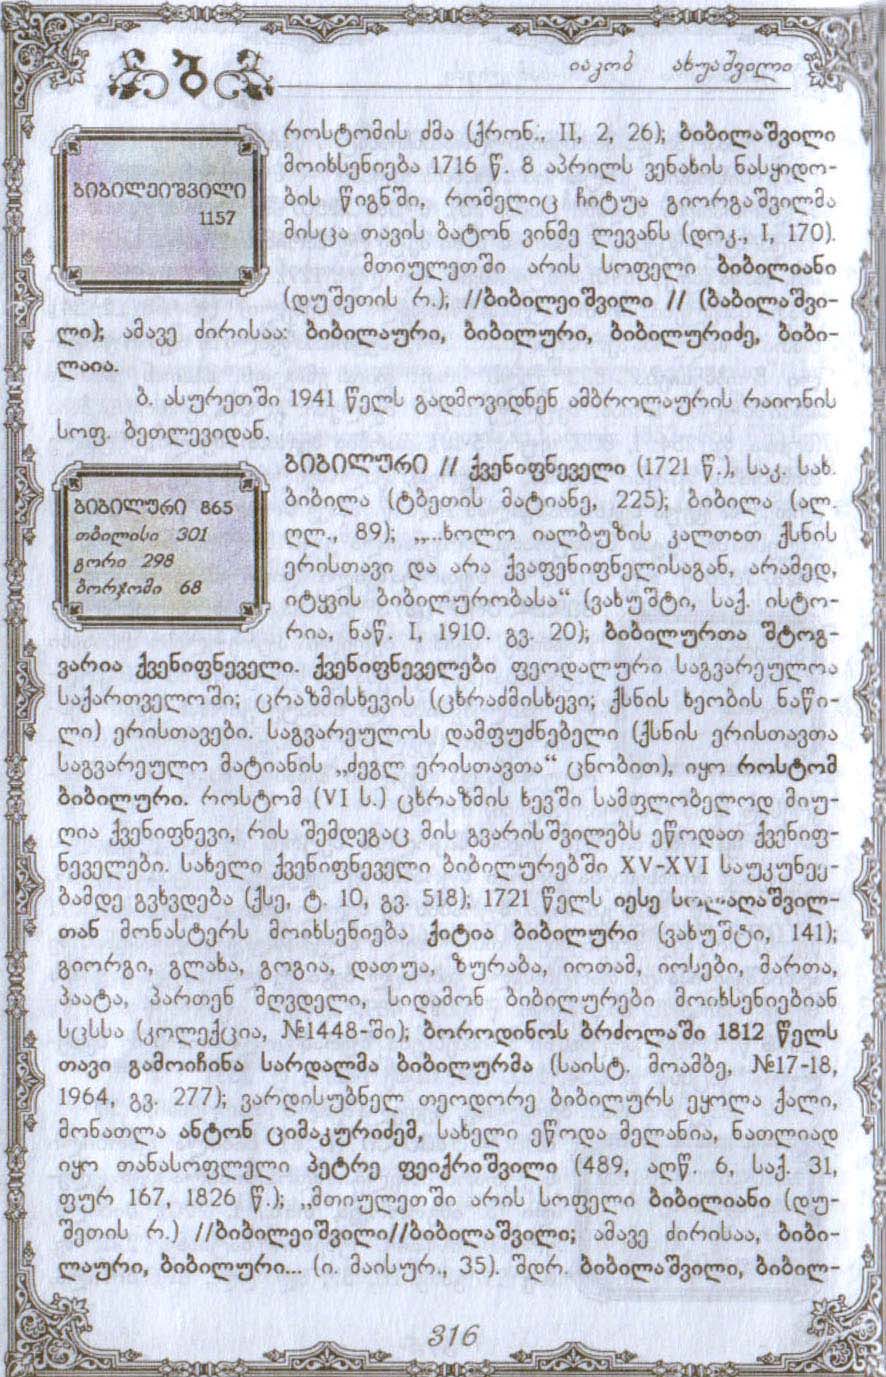 ბ
იაკობ ახუაშვილი
ბიბილეიშვილი
1157
როსტომის ძმა (ქრონ., II, 2, 26); ბიბილაშვილი
მოიხსენიება 1716 წ. 8 აპრილს ვენახის ნასყიდო-
ბის წიგნში, რომელიც ჩიტუა გიორგაშვილმა
მისცა თავის ბატონ ვინმე ლევანს (დოკ., I, 170).
მთიულეთში არის სოფელი ბიბილიანი
(დუშეთის რ.); //ბიბილეიშვილი // (ბაბილაშვი-
ლი); ამავე ძირისაა: ბიბილაური, ბიბილური, ბიბილურიძე, ბიბი-
ლაია.
ბ. ასურეთში 1941 წელს გადმოვიდნენ ამბროლაურის რაიონის
სოფ. ბეთლევიდან.
ბიბილური 865
თბილისი 301
გორი 298
ბორჯომი 68
ბიბილური // ქვენიფნეველი (1721 წ.), საკ. სახ.
ბიბილა (ტბეთის მატიანე, 225); ბიბილა (ალ.
ღლ., 89); „...ხოლო იალბუზის კალთით ქსნის
ერისთავი და არა ქვაფენიფნელისაგან, არამედ,
იტყვის ბიბილურობასა“ (ვახუშტი, საქ. ისტო-
რია, ნაწ. I, 1910. გვ. 20); ბიბილურთა შტოგ-
ვარია ქვენიფნეველი. ქვენიფნეველები ფეოდალური საგვარეულოა
საქართველოში; ცრაზმისხევის (ცხრაძმისხევი; ქსნის ხეობის ნაწი-
ლი) ერისთავები. საგვარეულოს დამფუძნებელი (ქსნის ერისთავთა
საგვარეულო მატიანის „ძეგლ ერისთავთა“ ცნობით), იყო როსტომ
ბიბილური. როსტომ (VI ს.) ცხრაზმის ხევში სამფლობელოდ მიუ-
ღია ქვენიფნევი, რის შემდეგაც მის გვარისშვილებს ეწოდათ ქვენიფ-
ნეველები. სახელი ქვენიფნეველი ბიბილურებში XV-XVI საუკუნეე-
ბამდე გვხვდება (ქსე, ტ. 10, გვ. 518); 1721 წელს იესე
თან მონასტერს მოიხსენიება ქიტია ბიბილური (ვახუშტი, 141);
გიორგი, გლახა, გოგია, დათუა, ზურაბა, იოთამ, იოსები, მართა,
პაატა, პართენ მღვდელი, სიდამონ ბიბილურები მოიხსენიებიან
სცსსა (კოლექცია, №1448-ში); ბოროდინოს ბრძოლაში 1812 წელს
თავი გამოიჩინა სარდალმა ბიბილურმა (საისტ. მოამბე, №17-18,
1964, გვ. 277); ვარდისუბნელ თეოდორე ბიბილურს ეყოლა ქალი,
მონათლა ანტონ ციმაკურიძემ, სახელი ეწოდა მელანია, ნათლიად
იყო თანასოფლელი პეტრე ფეიქრიშვილი (489, აღწ. 6, საქ. 31,
ფურ 167, 1826 წ.); „მთიულეთში არის სოფელი ბიბილიანი (დუ-
შეთის რ.) //ბიბილეიშვილი//ბიბილაშვილი; ამავე ძირისაა, ბიბი-
ლაური, ბიბილური... (ი. მაისურ., 35). შდრ. ბიბილაშვილი, ბიბილ-
316